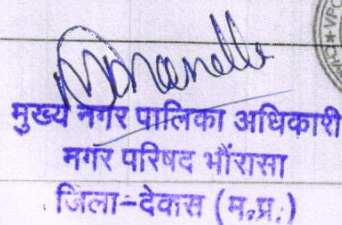 मुख्य नगर पालिका अधिकारी
नगर परिषद भौंरासा
जिला-देवास (म.प्र.)